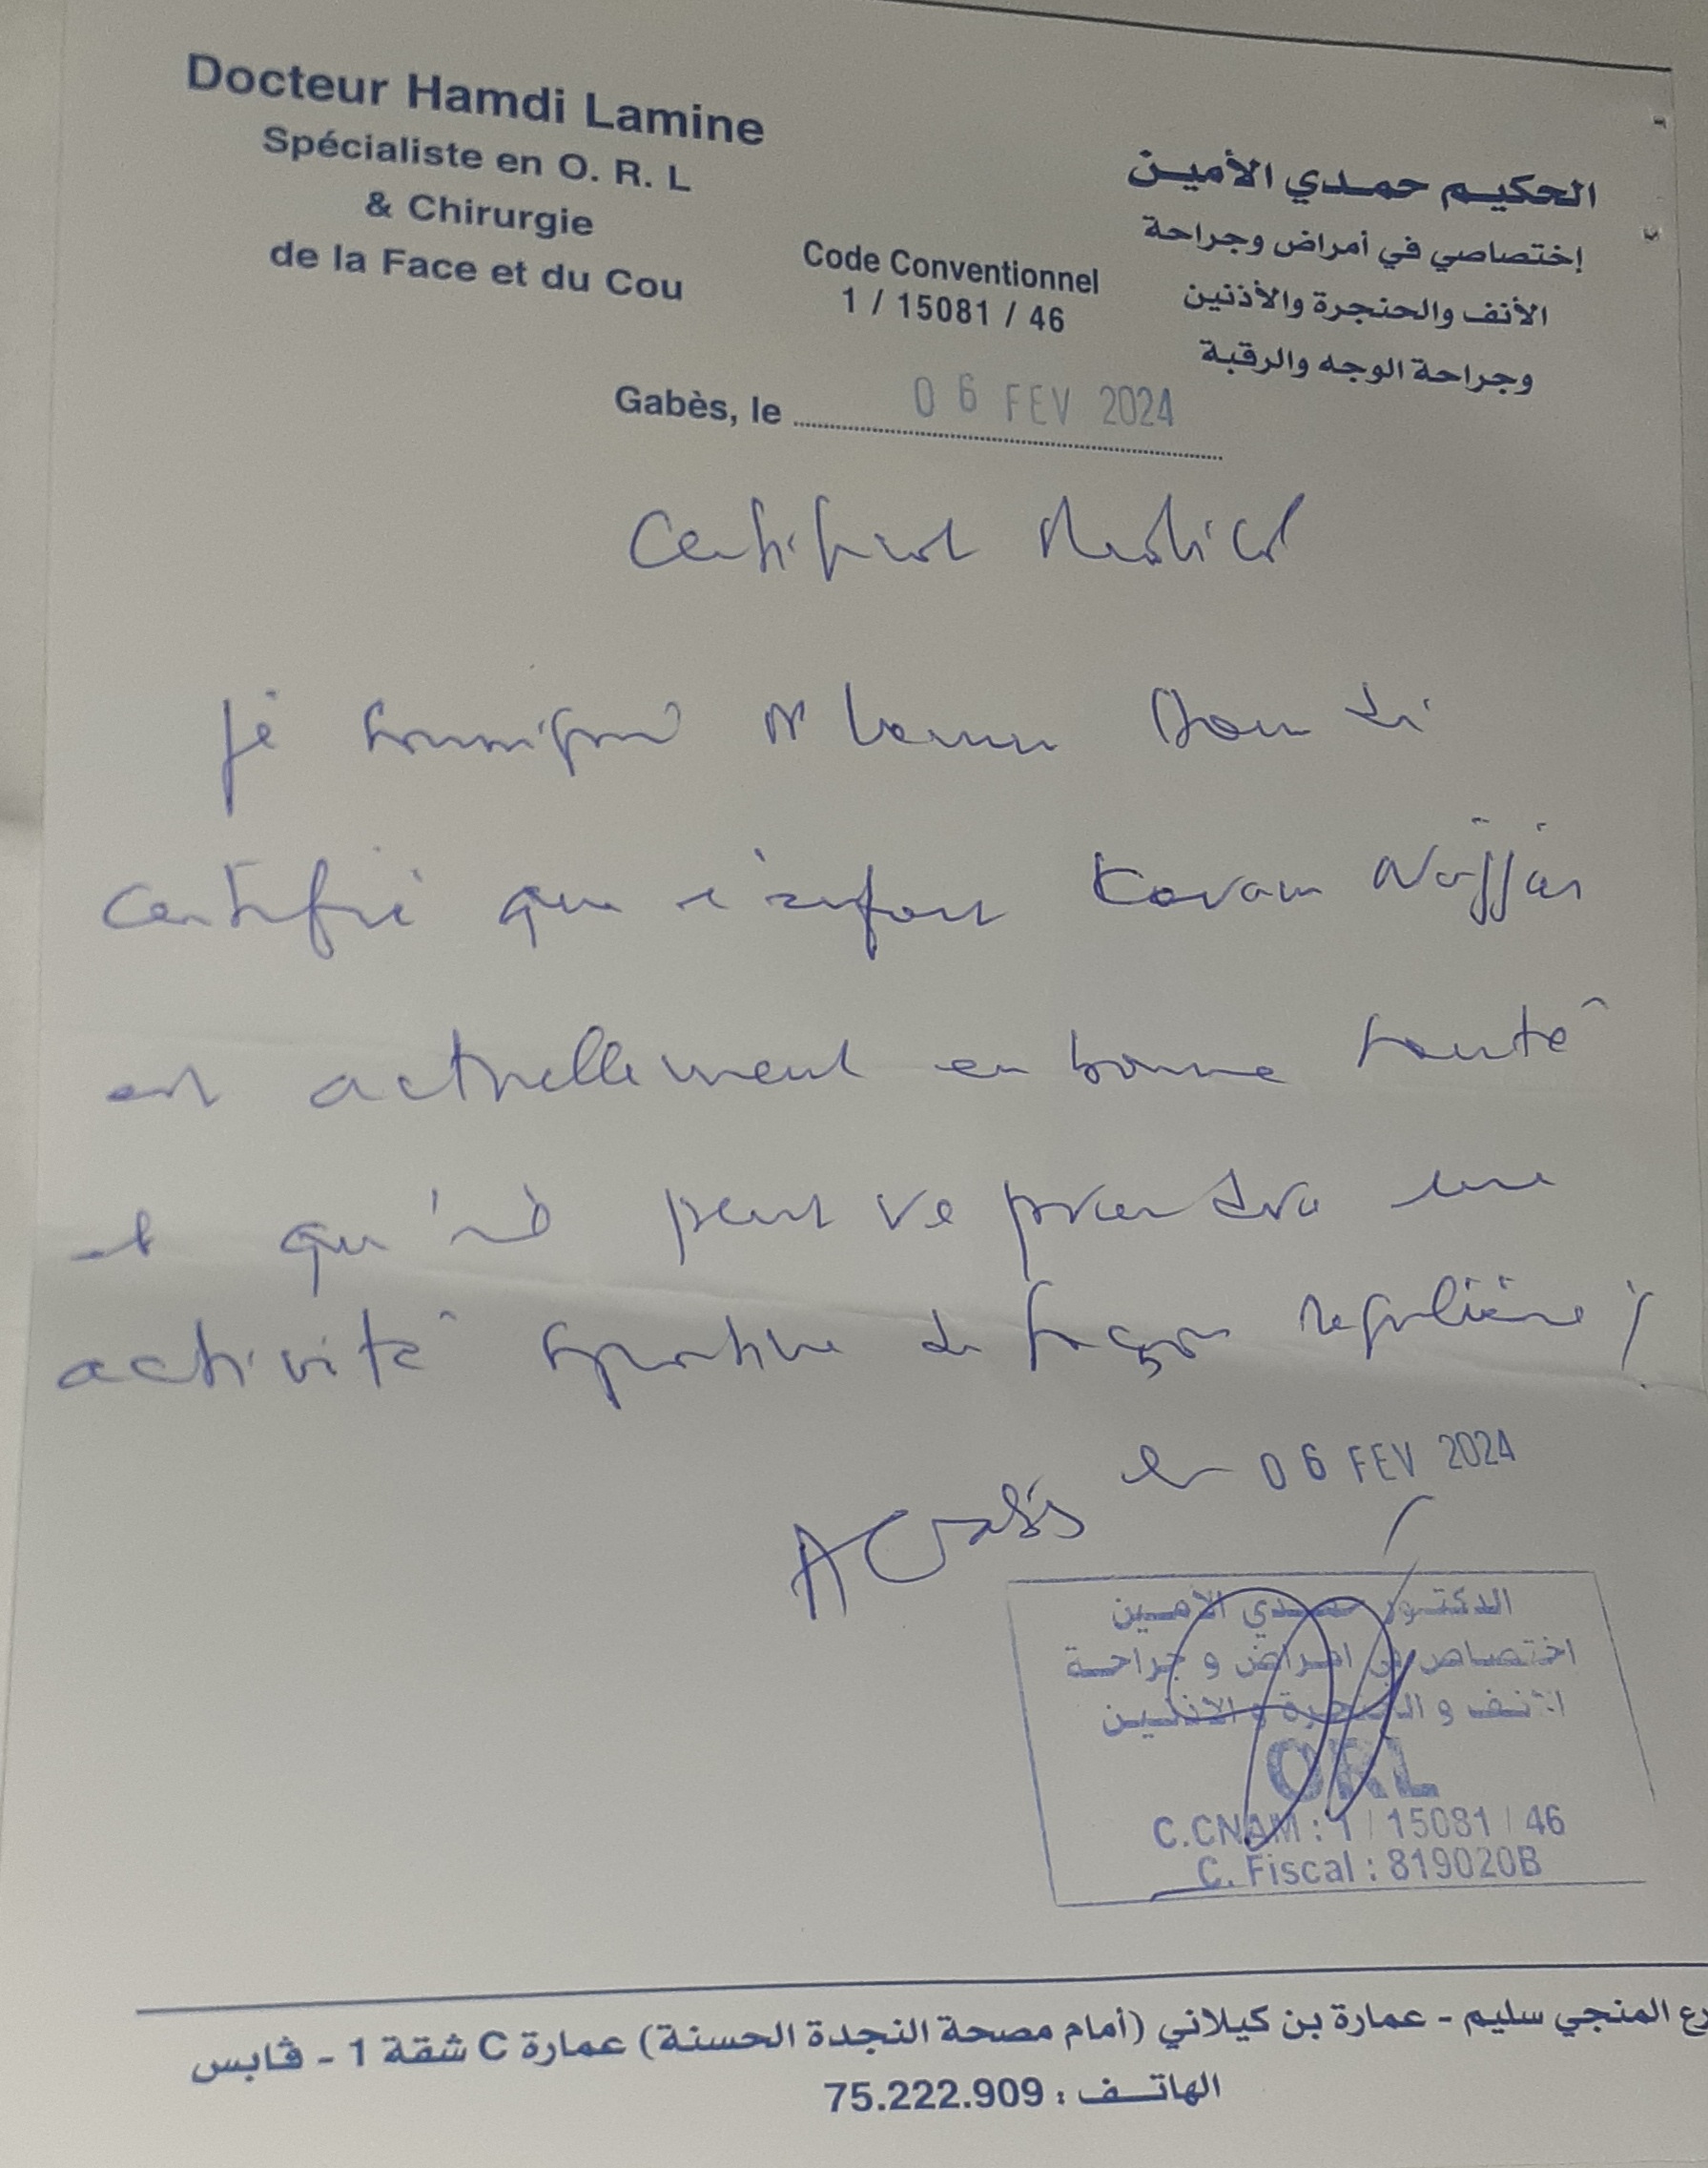 Docteur Hamdi Lamine
Spécialiste en O. R. L
& Chirurgie
de la Face et du Cou
Code Conventionnel
1 / 15081 / 46
الحكيم حمدي الأمين
إختصاصي في أمراض وجراحة
الأنف والحنجرة والأذنين
وجراحة الوجه والرقبة
Gabès, le 06 FEV 2024
Certificat Medical
Je soussigné Dr Lamine Hamdi
certifie que l'enfant Karam Najjar
est actuellement en bonne santé
et qu'il peut reprendre une
activité sportive de façon régulière /.
A Gabès le 06 FEV 2024
الدكتور حمدي الأمين
اختصاصي في امراض و جراحة
الانف و الحنجرة و الاذنين
ORL
C.CNAM : 1 / 15081 / 46
C. Fiscal : 819020B
المنجي سليم - عمارة بن كيلاني (أمام مصحة النجدة الحسنة) عمارة C شقة 1 - ڤابس
الهاتف : 75.222.909